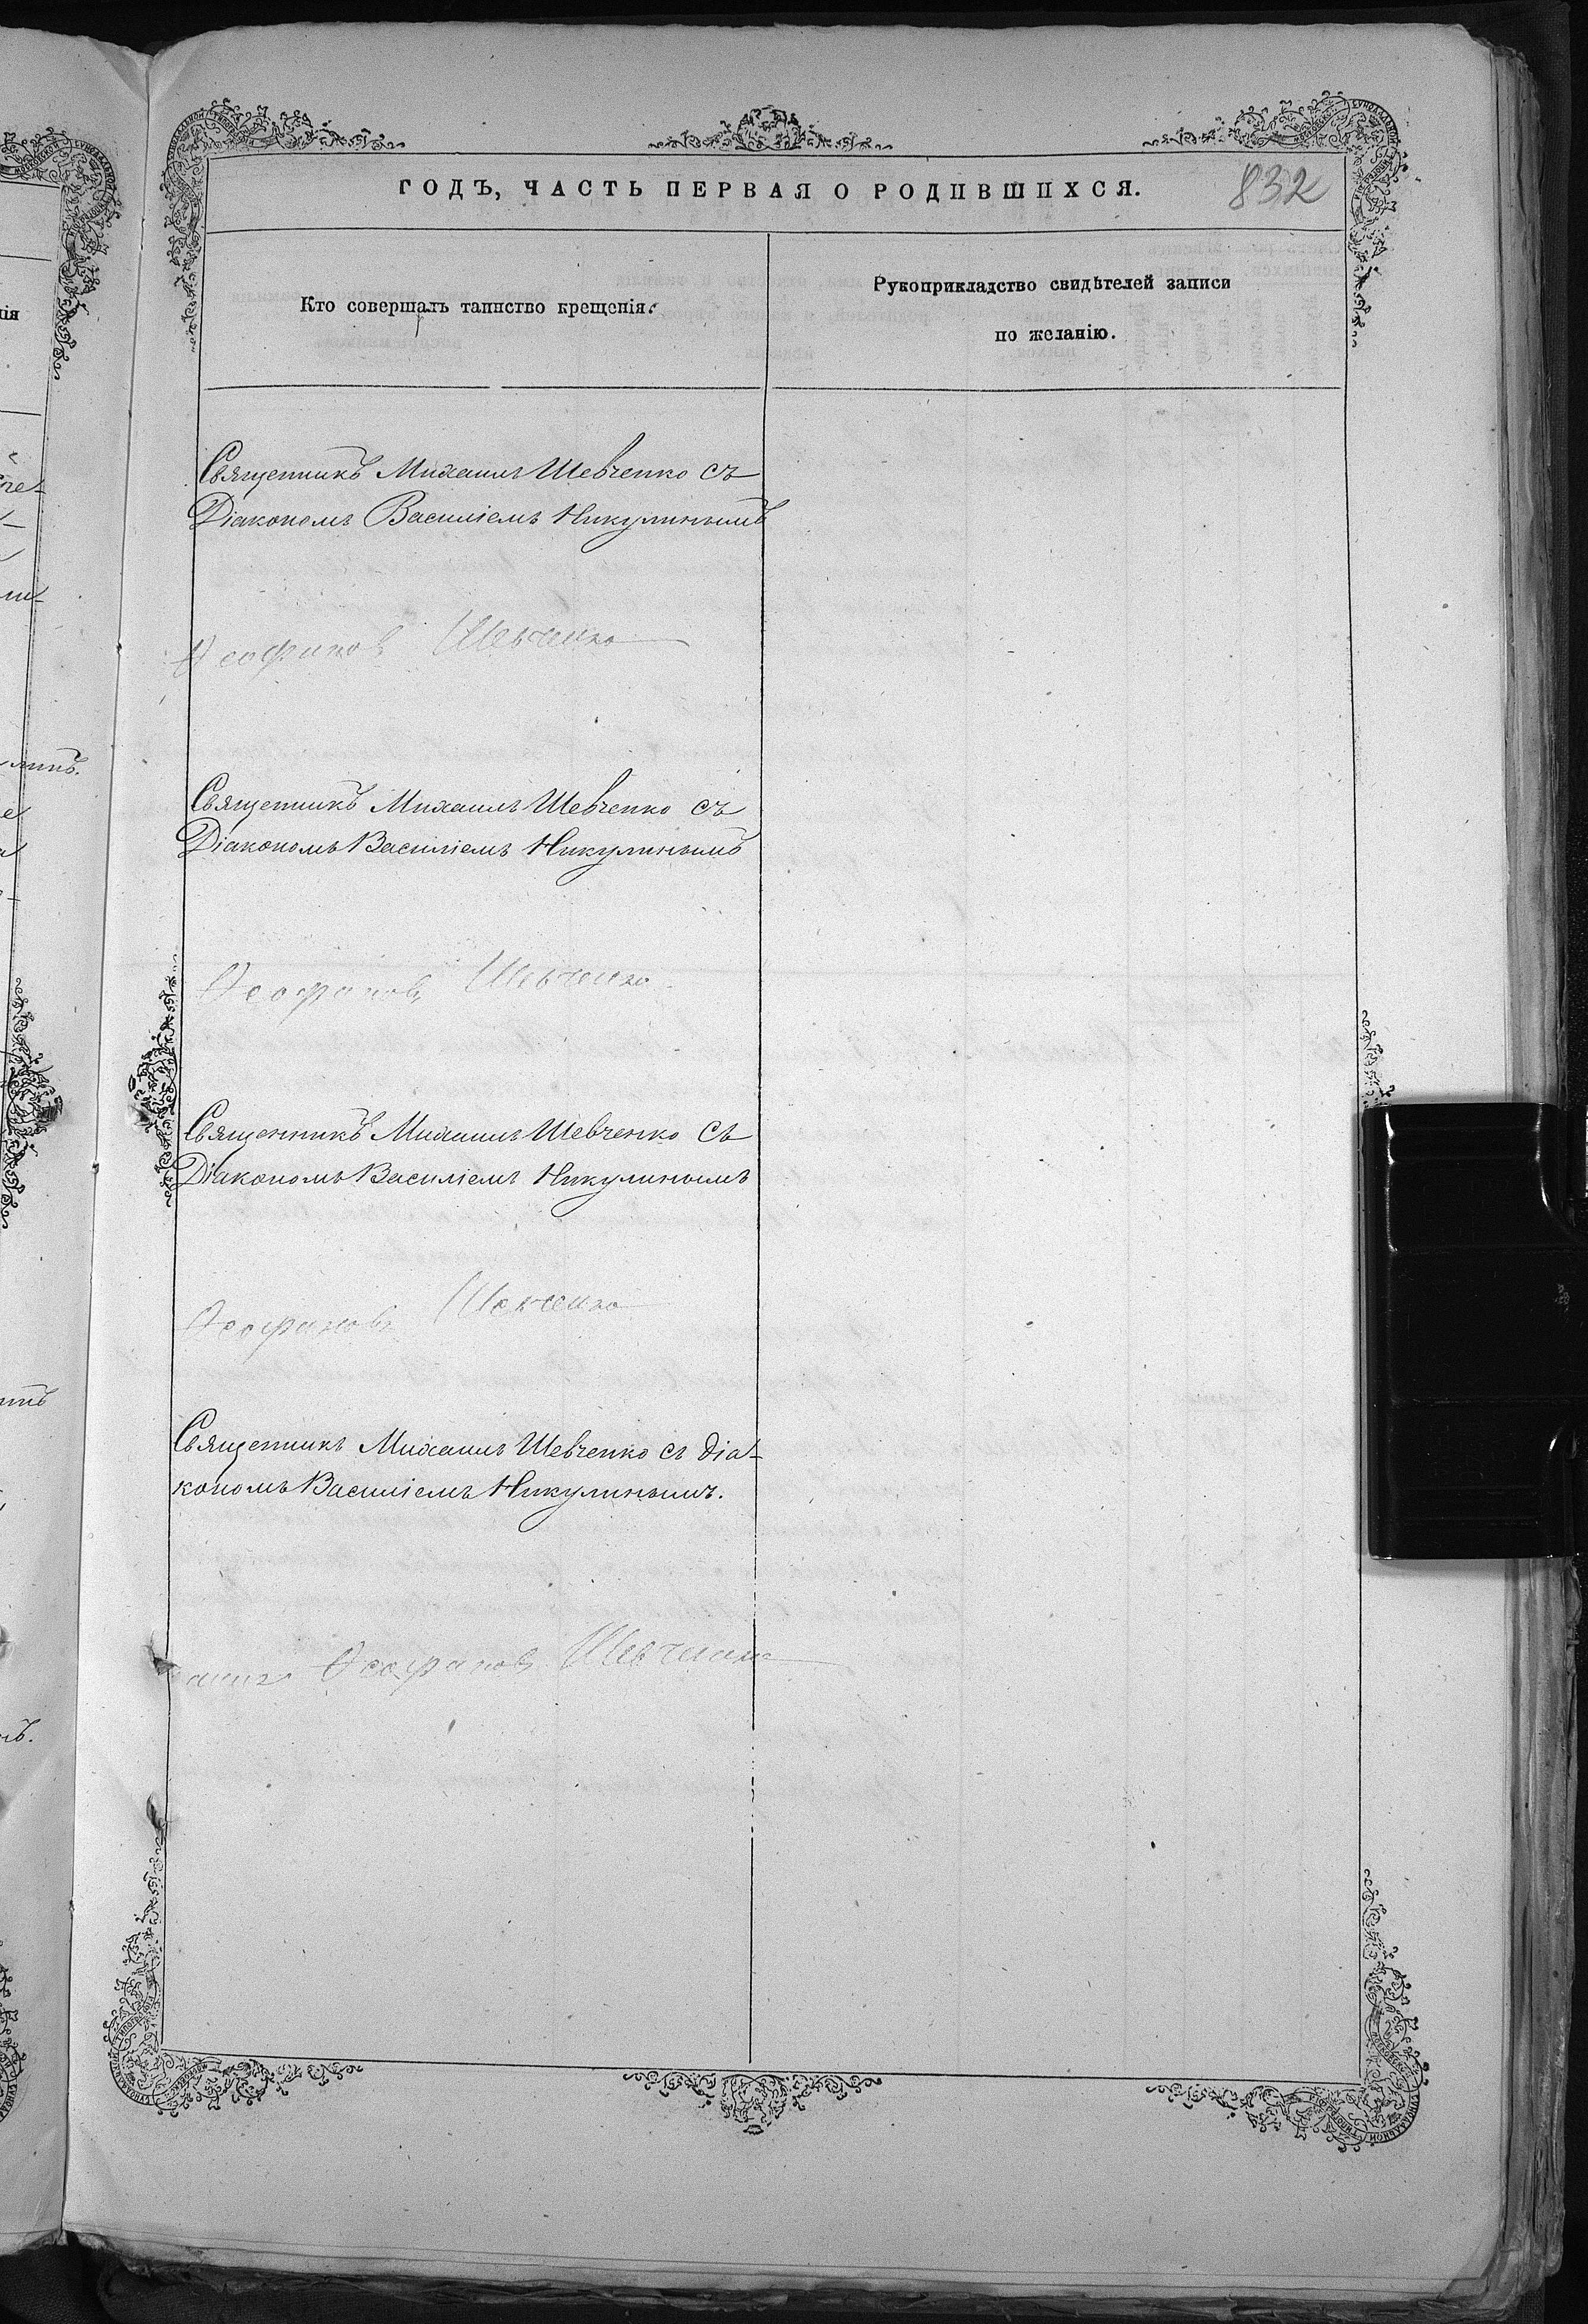 ГОДЪ, ЧАСТЬ ПЕРВАЯ О РОДИВШИХСЯ.
832
Кто совершалъ таинство крещенія.
Рукоприкладство свидѣтелей записи
по желанію.
Священникъ Михаилъ Шевченко съ
Діакономъ Василіемъ Никулинымъ
Ѳеофановъ Шевченко
Священникъ Михаилъ Шевченко съ
Діакономъ Василіемъ Никулинымъ
Ѳеофановъ Шевченко
Священникъ Михаилъ Шевченко съ
Діакономъ Василіемъ Никулинымъ
Ѳеофановъ Шевченко
Священникъ Михаилъ Шевченко съ діа-
кономъ Василіемъ Никулинымъ.
Ѳеофановъ Шевченко